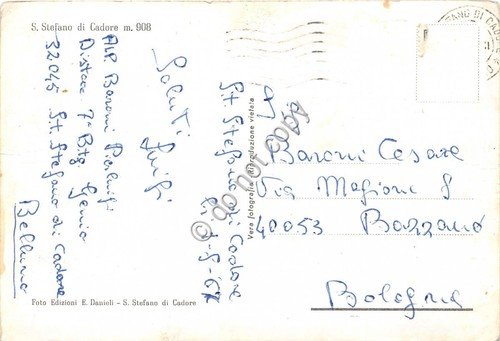 S. Stefano di Cadore m. 908
Alp. Baroni Pierluigi
Distacc 7° Btg Genio
32045 St. Stefano di Cadore
Belluno
Saluti
Luigi
St. Stefano di Cadore
Vera fotografia - Riproduzione vietata
Baroni Cesare
Via Magioni 8
40053 Bazzano
Bologna
Foto Edizioni E. Danieli - S. Stefano di Cadore
do not copy